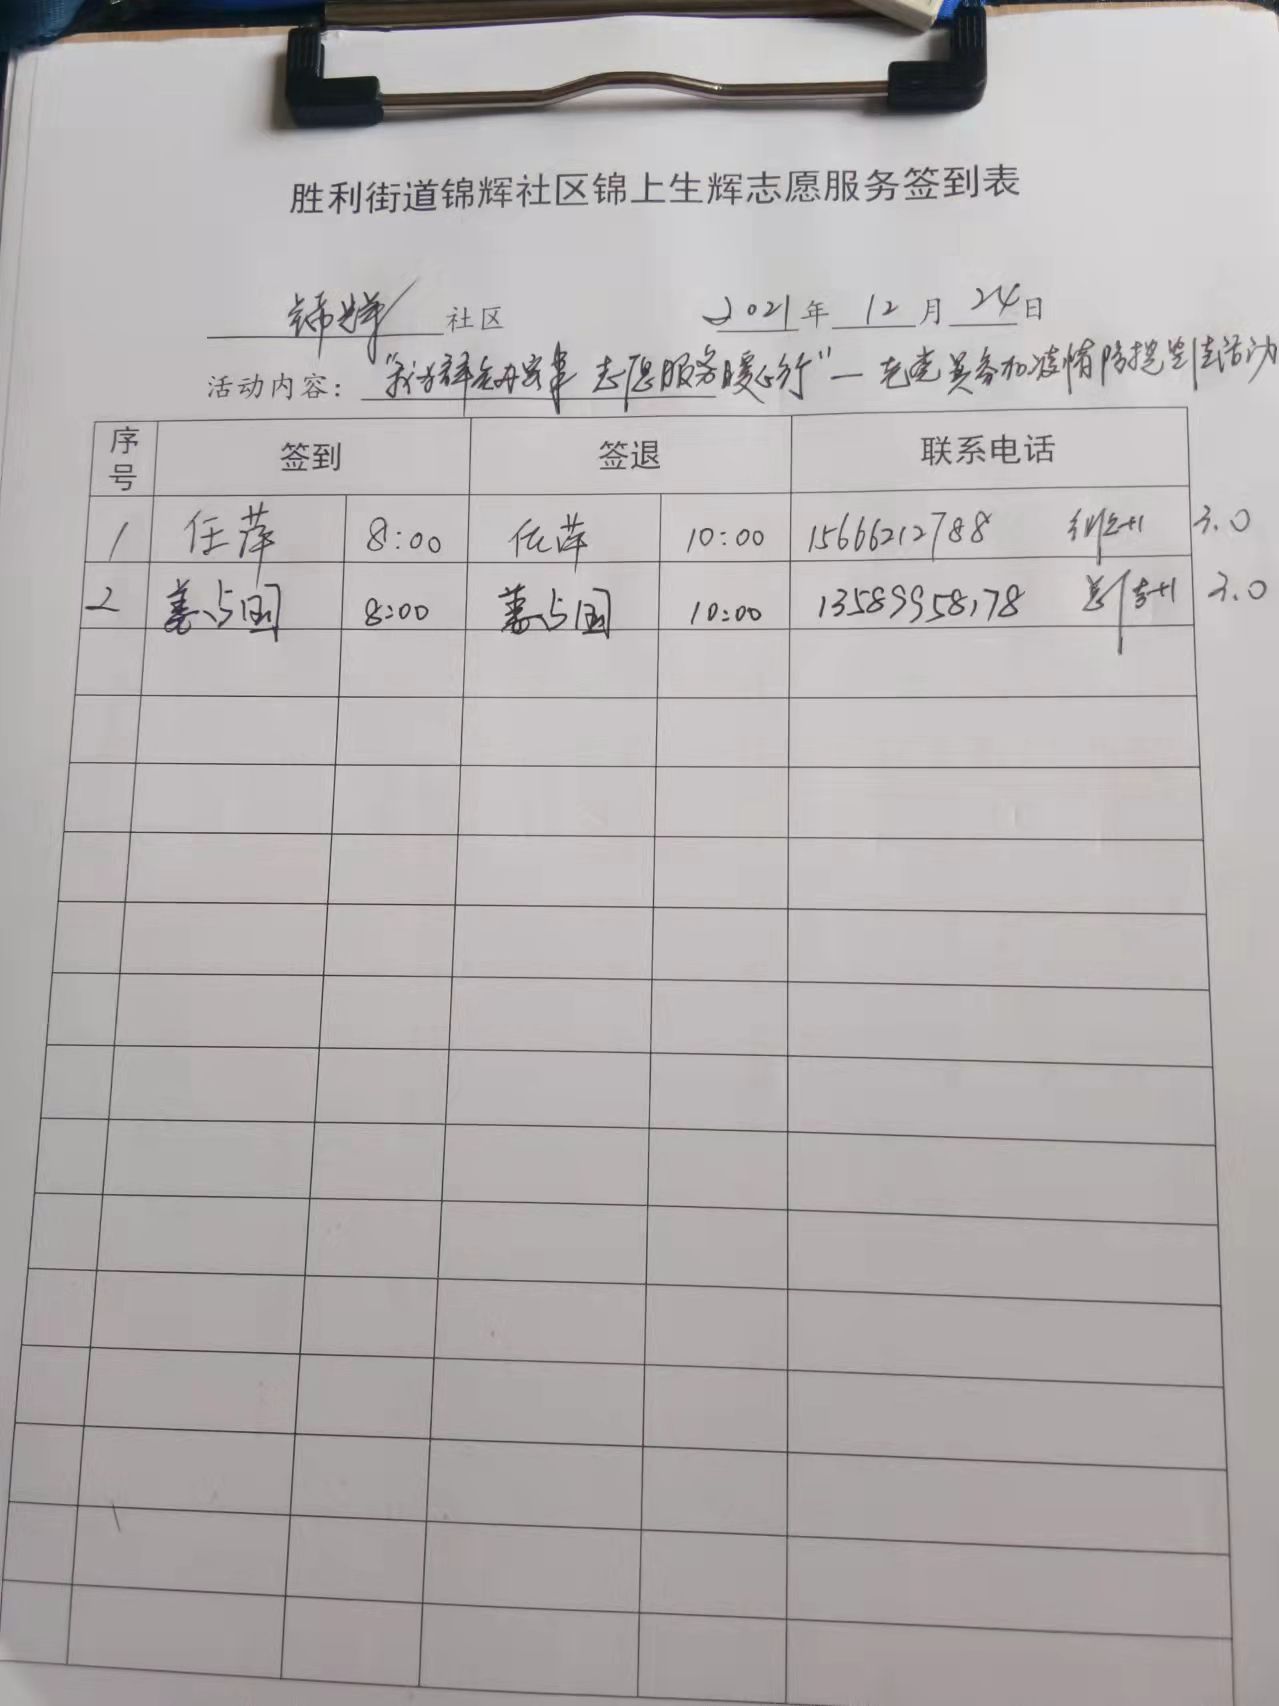 胜利街道锦辉社区锦上生辉志愿服务签到表
锦辉 社区 2021 年 12 月 24 日
活动内容： "我为群众办实事 志愿服务暖心行" — 老党员参加疫情防控宣传活动
序号 签到 签退 联系电话
1 任萍 8:00 任萍 10:00 15666212788 3.0
2 姜占国 8:00 姜占国 10:00 13589958178 3.0